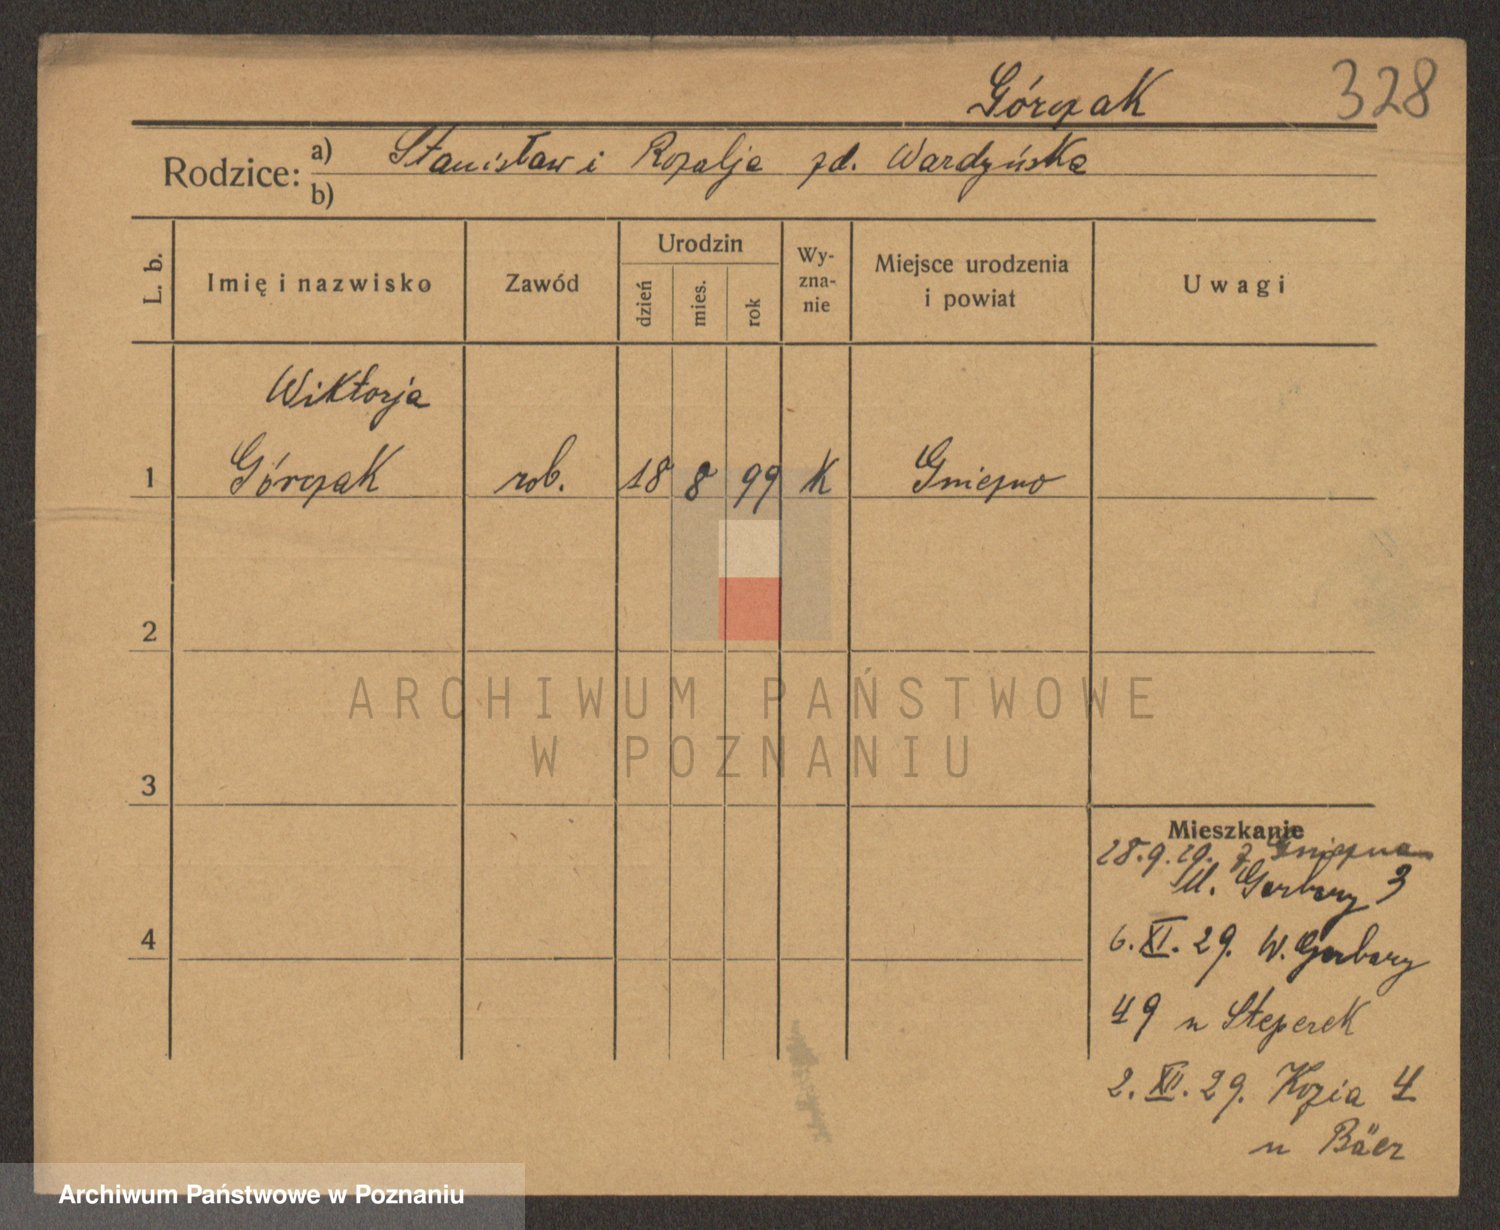 Górczak 328
Rodzice: a) Stanisław i Rozalja zd. Wardzyńska
b)
L. b. Imię i nazwisko Zawód Urodzin dzień mies. rok Wy-zna-nie Miejsce urodzenia i powiat Uwagi
Wiktorja
1 Górczak rob. 18 8 99 K Gniezno
2
ARCHIWUM PAŃSTWOWE
W POZNANIU
3
Mieszkanie
28.9.29. z Gniezna
Ul. Garbary 3
4
6.XI.29. W. Garbary
49 u Steperek
2.XII.29. Kozia 4
u Bäer
Archiwum Państwowe w Poznaniu